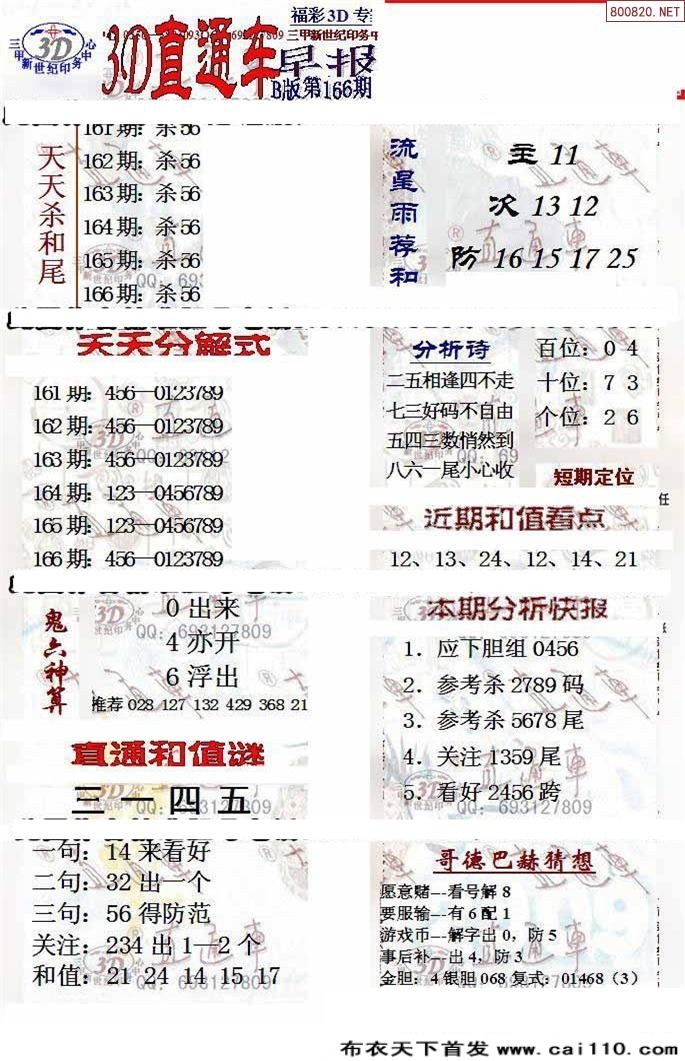 800820.NET
福彩3D专
三甲新世纪印务中心
3D
3D直通车
三甲新世纪印务中
早报
B版第166期
天天杀和尾
161期：杀56
162期：杀56
163期：杀56
164期：杀56
165期：杀56
166期：杀56
流星雨荐和
主 11
次 13 12
防 16 15 17 25
天天分解式
161期：456—0123789
162期：456—0123789
163期：456—0123789
164期：123—0456789
165期：123—0456789
166期：456—0123789
分析诗
二五相逢四不走
七三好码不自由
五四三数悄然到
八六一尾小心收
百位：0 4
十位：7 3
个位：2 6
短期定位
任
近期和值看点
12、13、24、12、14、21
鬼六神算
0出来
4亦开
6浮出
推荐 028 127 132 429 368 21
QQ：693127809
本期分析快报
1．应下胆组0456
2．参考杀2789码
3．参考杀5678尾
4．关注1359尾
5．看好2456跨
QQ：693127809
直通和值谜
三一四五
QQ：693127809
一句：14来看好
二句：32出一个
三句：56得防范
关注：234出1—2个
和值：21 24 14 15 17
哥德巴赫猜想
愿意赌---看号解8
要服输---有6配1
游戏币---解字出0，防5
事后补---出4，防3
金胆：4银胆068复式：01468（3）
布衣天下首发 www.cai110.com